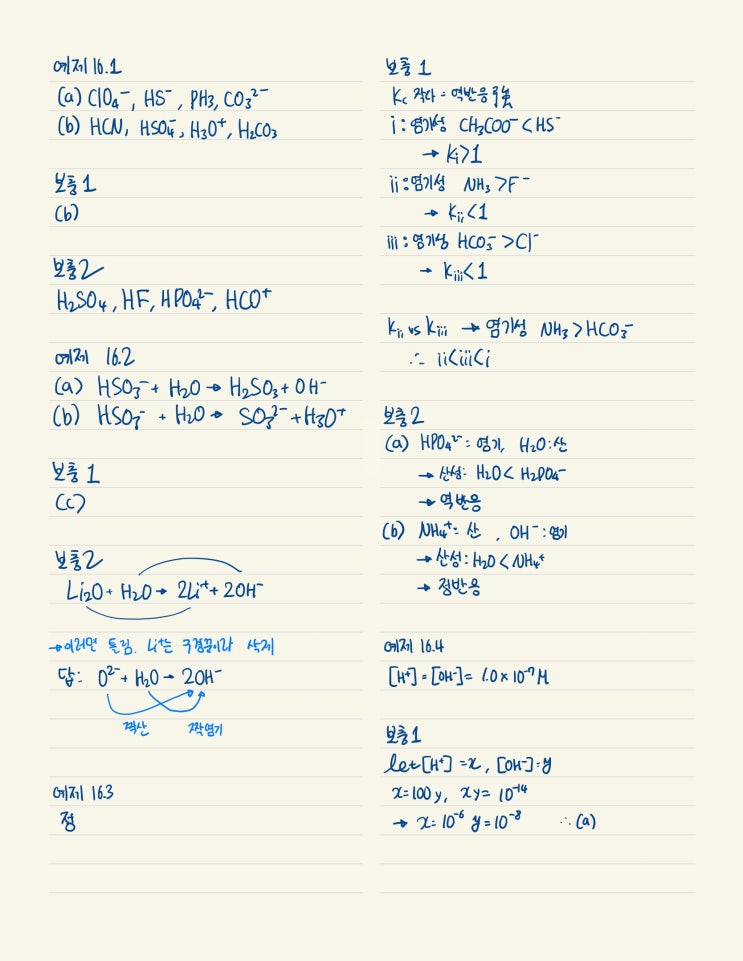 예제 16.1
(a) ClO₄⁻, HS⁻, PH₃, CO₃²⁻
(b) HCN, HSO₄⁻, H₃O⁺, H₂CO₃
보충 1
(b)
보충 2
H₂SO₄, HF, HPO₄²⁻, HCO⁺
예제 16.2
(a) HSO₃⁻ + H₂O → H₂SO₃ + OH⁻
(b) HSO₃⁻ + H₂O → SO₃²⁻ + H₃O⁺
보충 1
(c)
보충 2
Li₂O + H₂O → 2Li⁺ + 2OH⁻
→ 이러면 틀림. Li⁺는 구경꾼이라 삭제
답: O²⁻ + H₂O → 2OH⁻
짝산 짝염기
예제 16.3
정
보충 1
Kc 작다 = 역반응 强
i : 염기성 CH₃COO⁻ < HS⁻
→ Ki > 1
ii : 염기성 NH₃ > F⁻
→ Kii < 1
iii : 염기성 HCO₃⁻ > Cl⁻
→ Kiii < 1
Kii vs Kiii → 염기성 NH₃ > HCO₃⁻
∴ ii < iii < i
보충 2
(a) HPO₄²⁻ : 염기, H₂O : 산
→ 산성: H₂O < H₂PO₄⁻
→ 역반응
(b) NH₄⁺ : 산, OH⁻ : 염기
→ 산성: H₂O < NH₄⁺
→ 정반응
예제 16.4
[H⁺] = [OH⁻] = 1.0 × 10⁻⁷ M
보충 1
let [H⁺] = x, [OH⁻] = y
x = 100y, xy = 10⁻¹⁴
→ x = 10⁻⁶ y = 10⁻⁸ ∴ (a)